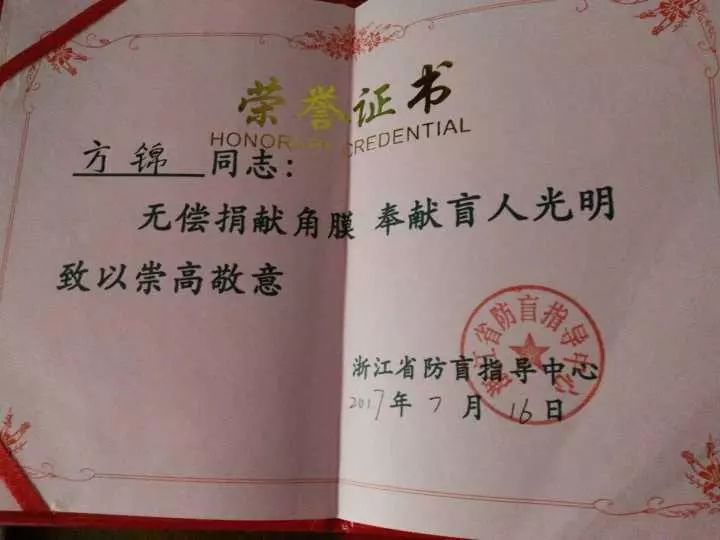 荣誉证书
HONORARY CREDENTIAL
方锦 同志：
无偿捐献角膜 奉献盲人光明
致以崇高敬意
浙江省防盲指导中心
2017年7月16日
浙江省防盲指导中心